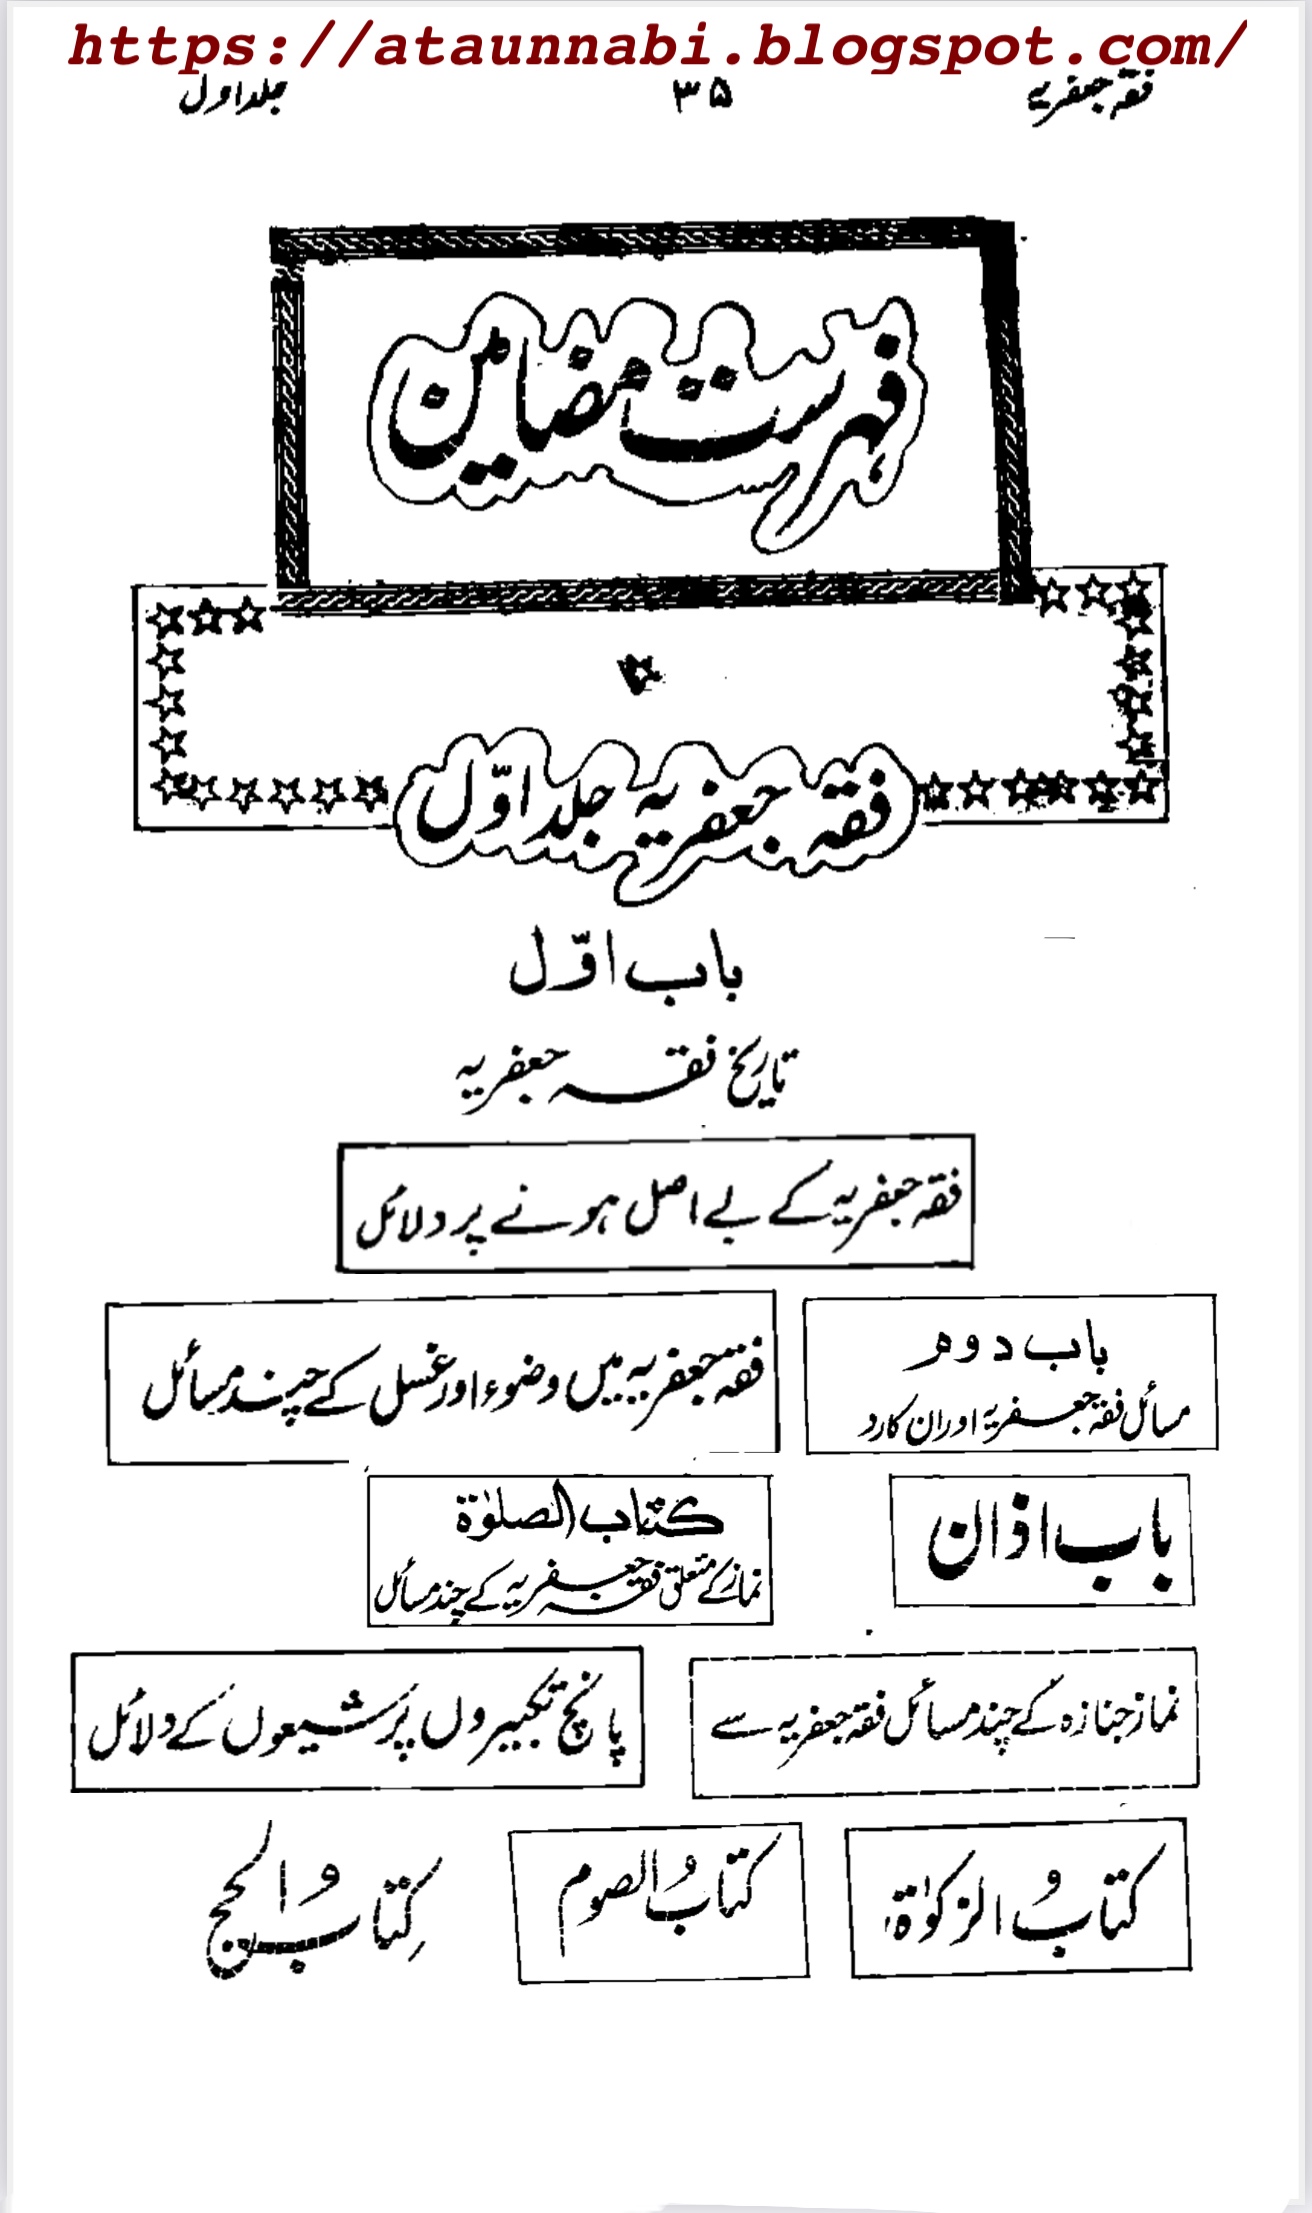 https://ataunnabi.blogspot.com/
فقہ جعفریہ ۳۵ جلد اول
فہرست مضامین
فقہ جعفریہ جلد اوّل
باب اوّل
تاریخ فقہ جعفریہ
فقہ جعفریہ کے بے اصل ہونے پر دلائل
باب دوم
مسائل فقہ جعفریہ اور ان کا رد
فقہ جعفریہ میں وضوء اور غسل کے چند مسائل
باب اذان
کتاب الصلوٰۃ
نماز کے متعلق فقہ جعفریہ کے چند مسائل
نماز جنازہ کے چند مسائل فقہ جعفریہ سے
پانچ تکبیروں پر شیعوں کے دلائل
کتابُ الزکوٰۃ
کتابُ الصوم
کِتابُ الحج